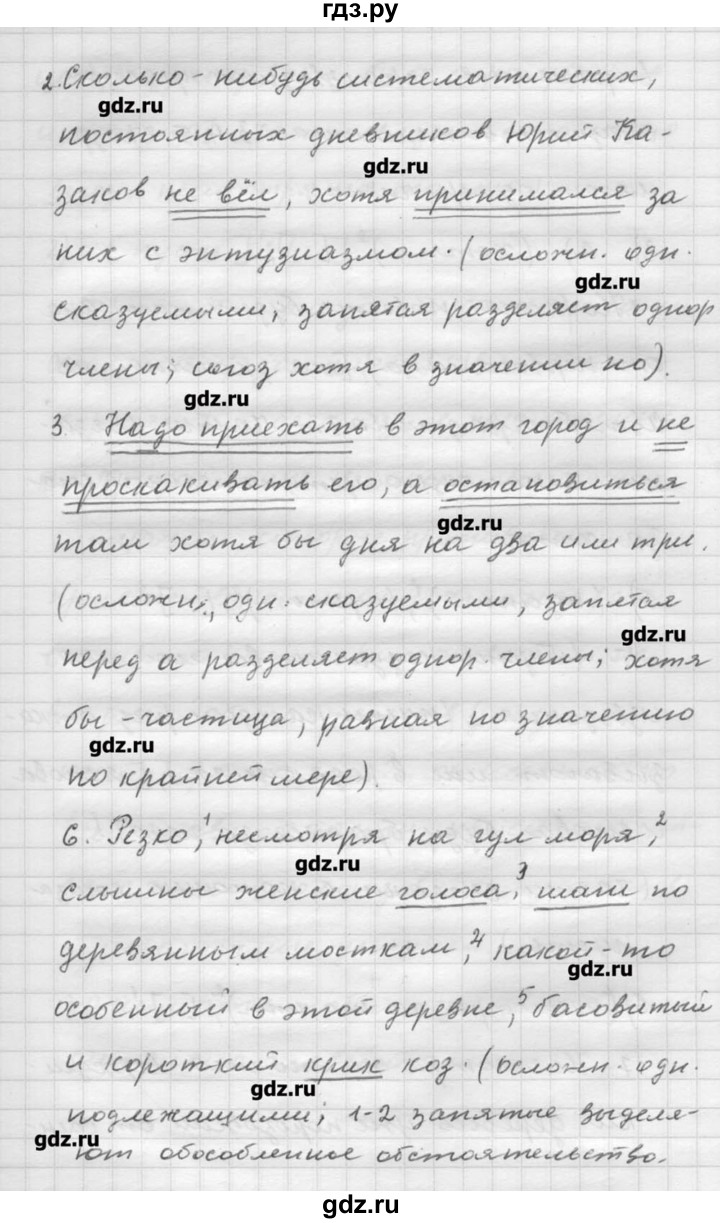 гдз.ру
2. Сколько-нибудь систематических,
gdz.ru
постоянных дневников Юрий Ка-
gdz.ru
заков не вёл, хотя принимался за
них с энтузиазмом. (осложн. одн.
gdz.ru
сказуемыми, запятая разделяет однор
члены; союз хотя в значении но).
gdz.ru
3 Надо приехать в этот город и не
проскакивать его, а остановиться
gdz.ru
там хотя бы дня на два или три.
(осложн., одн. сказуемыми, запятая
gdz.ru
перед а разделяет однор. члены; хотя
бы - частица, равная по значению
gdz.ru
по крайней мере).
6. Резко,¹ несмотря на гул моря,²
gdz.ru
слышны женские голоса,³ шаги по
деревянным мосткам,⁴ какой-то
gdz.ru
особенный в этой деревне,⁵ басовитый
и короткий крик коз. (осложн. одн.
gdz.ru
подлежащими; 1-2 запятые выделя-
gdz.ru
ют обособленное обстоятельство.
gdz.ru